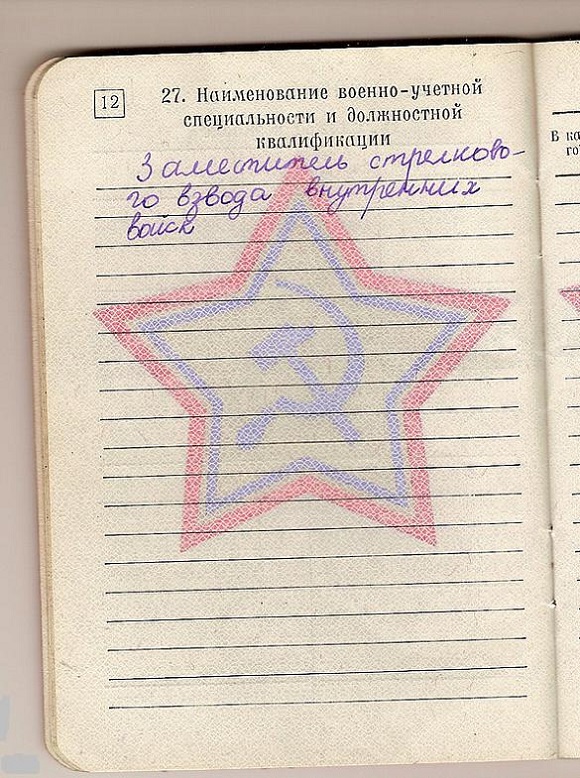 12
27. Наименование военно-учетной
специальности и должностной
квалификации
Заместитель стрелково-
го взвода внутренних
войск
В ка
го